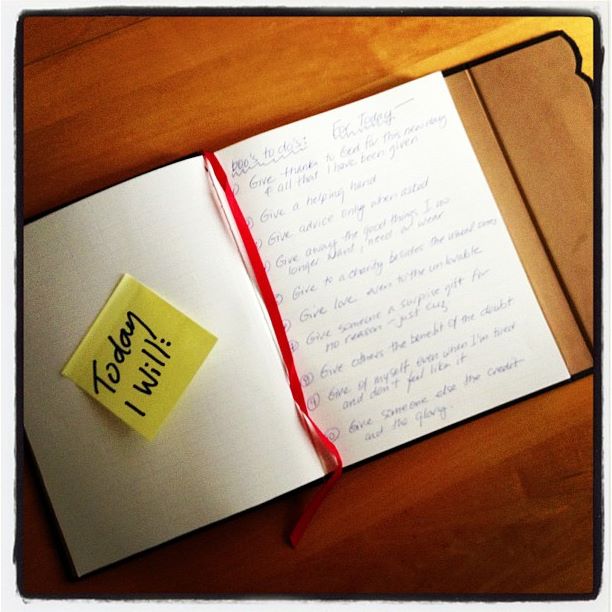 Today
I Will:
boo's to do's: For Today—
Give thanks to God for this new day
& all that I have been given
Give a helping hand
Give advice only when asked
Give away the good things I no
longer want, need or wear
Give to a charity besides the usual ones
Give love even to the unlovable
Give someone a surprise gift for
no reason - just cuz
⑧ Give others the benefit of the doubt
⑨ Give of myself even when I'm tired
and don't feel like it
Give someone else the credit
and the glory.